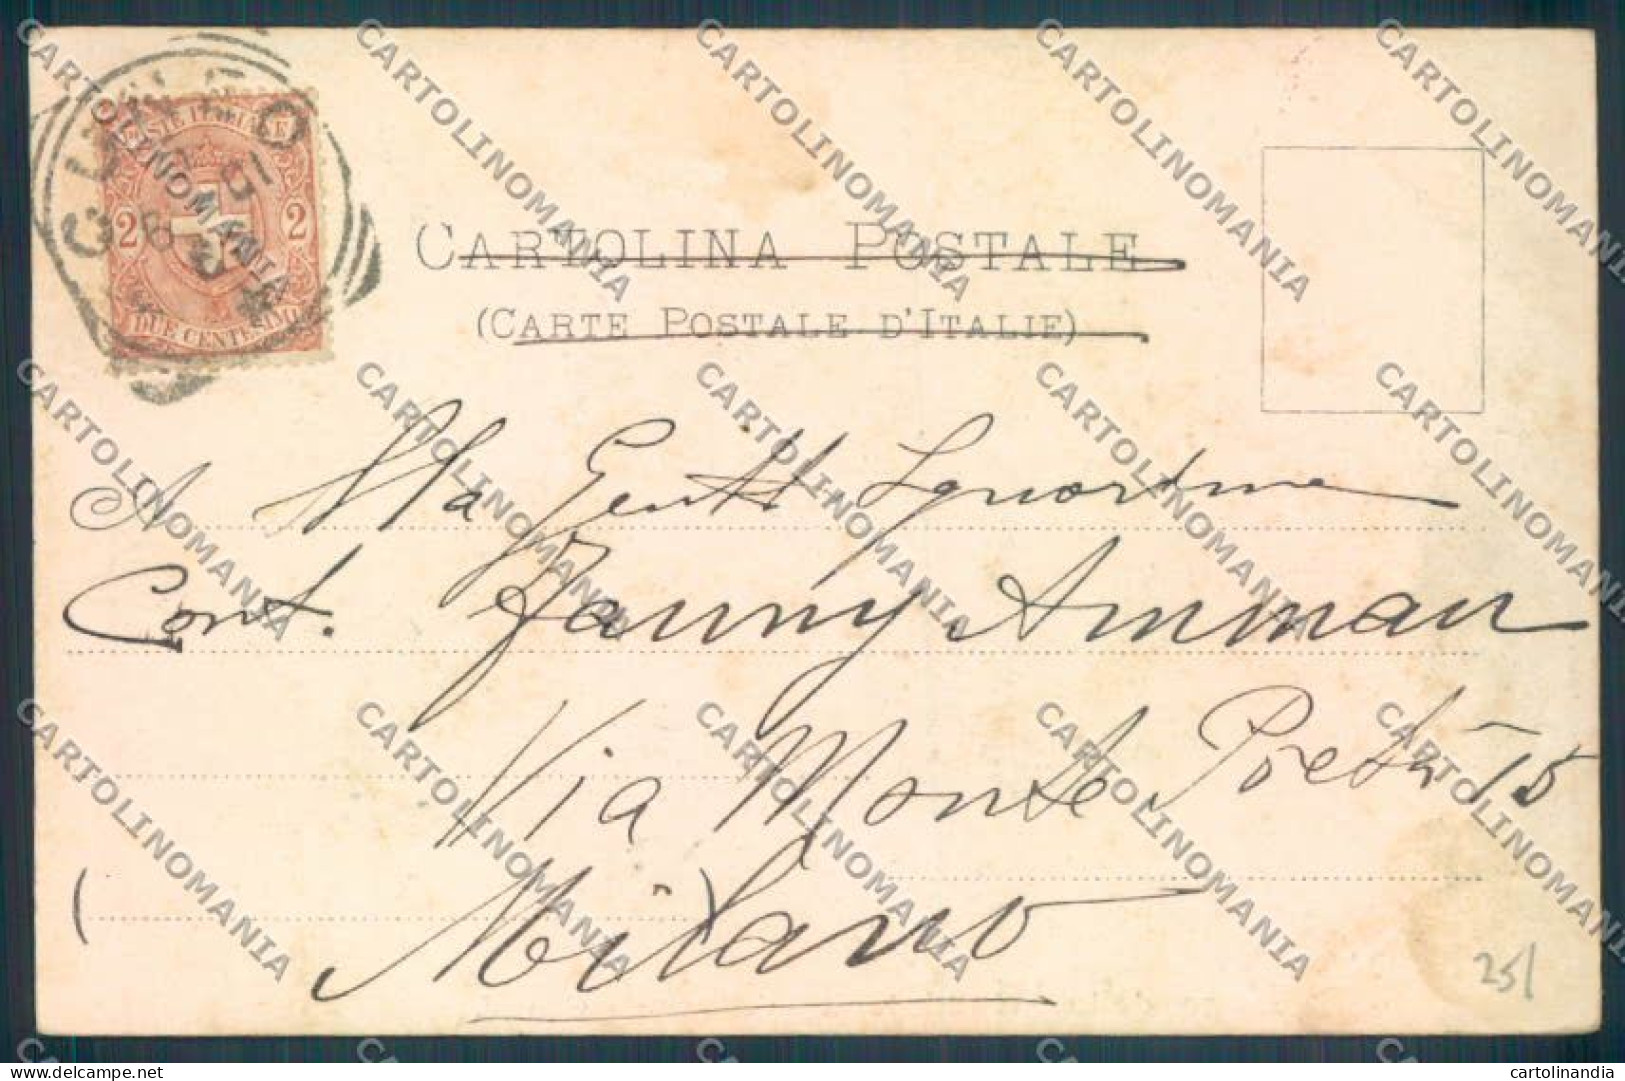 CUNEO
POSTE ITALIANE
2 2
DUE CENTESIMI
CARTOLINA POSTALE
(CARTE POSTALE D'ITALIE)
A Alla Gent. Signorina
Cont. Fanny Amman
Via Monte
15
Milano
251
CARTOLINOMANIA
cartolinandia